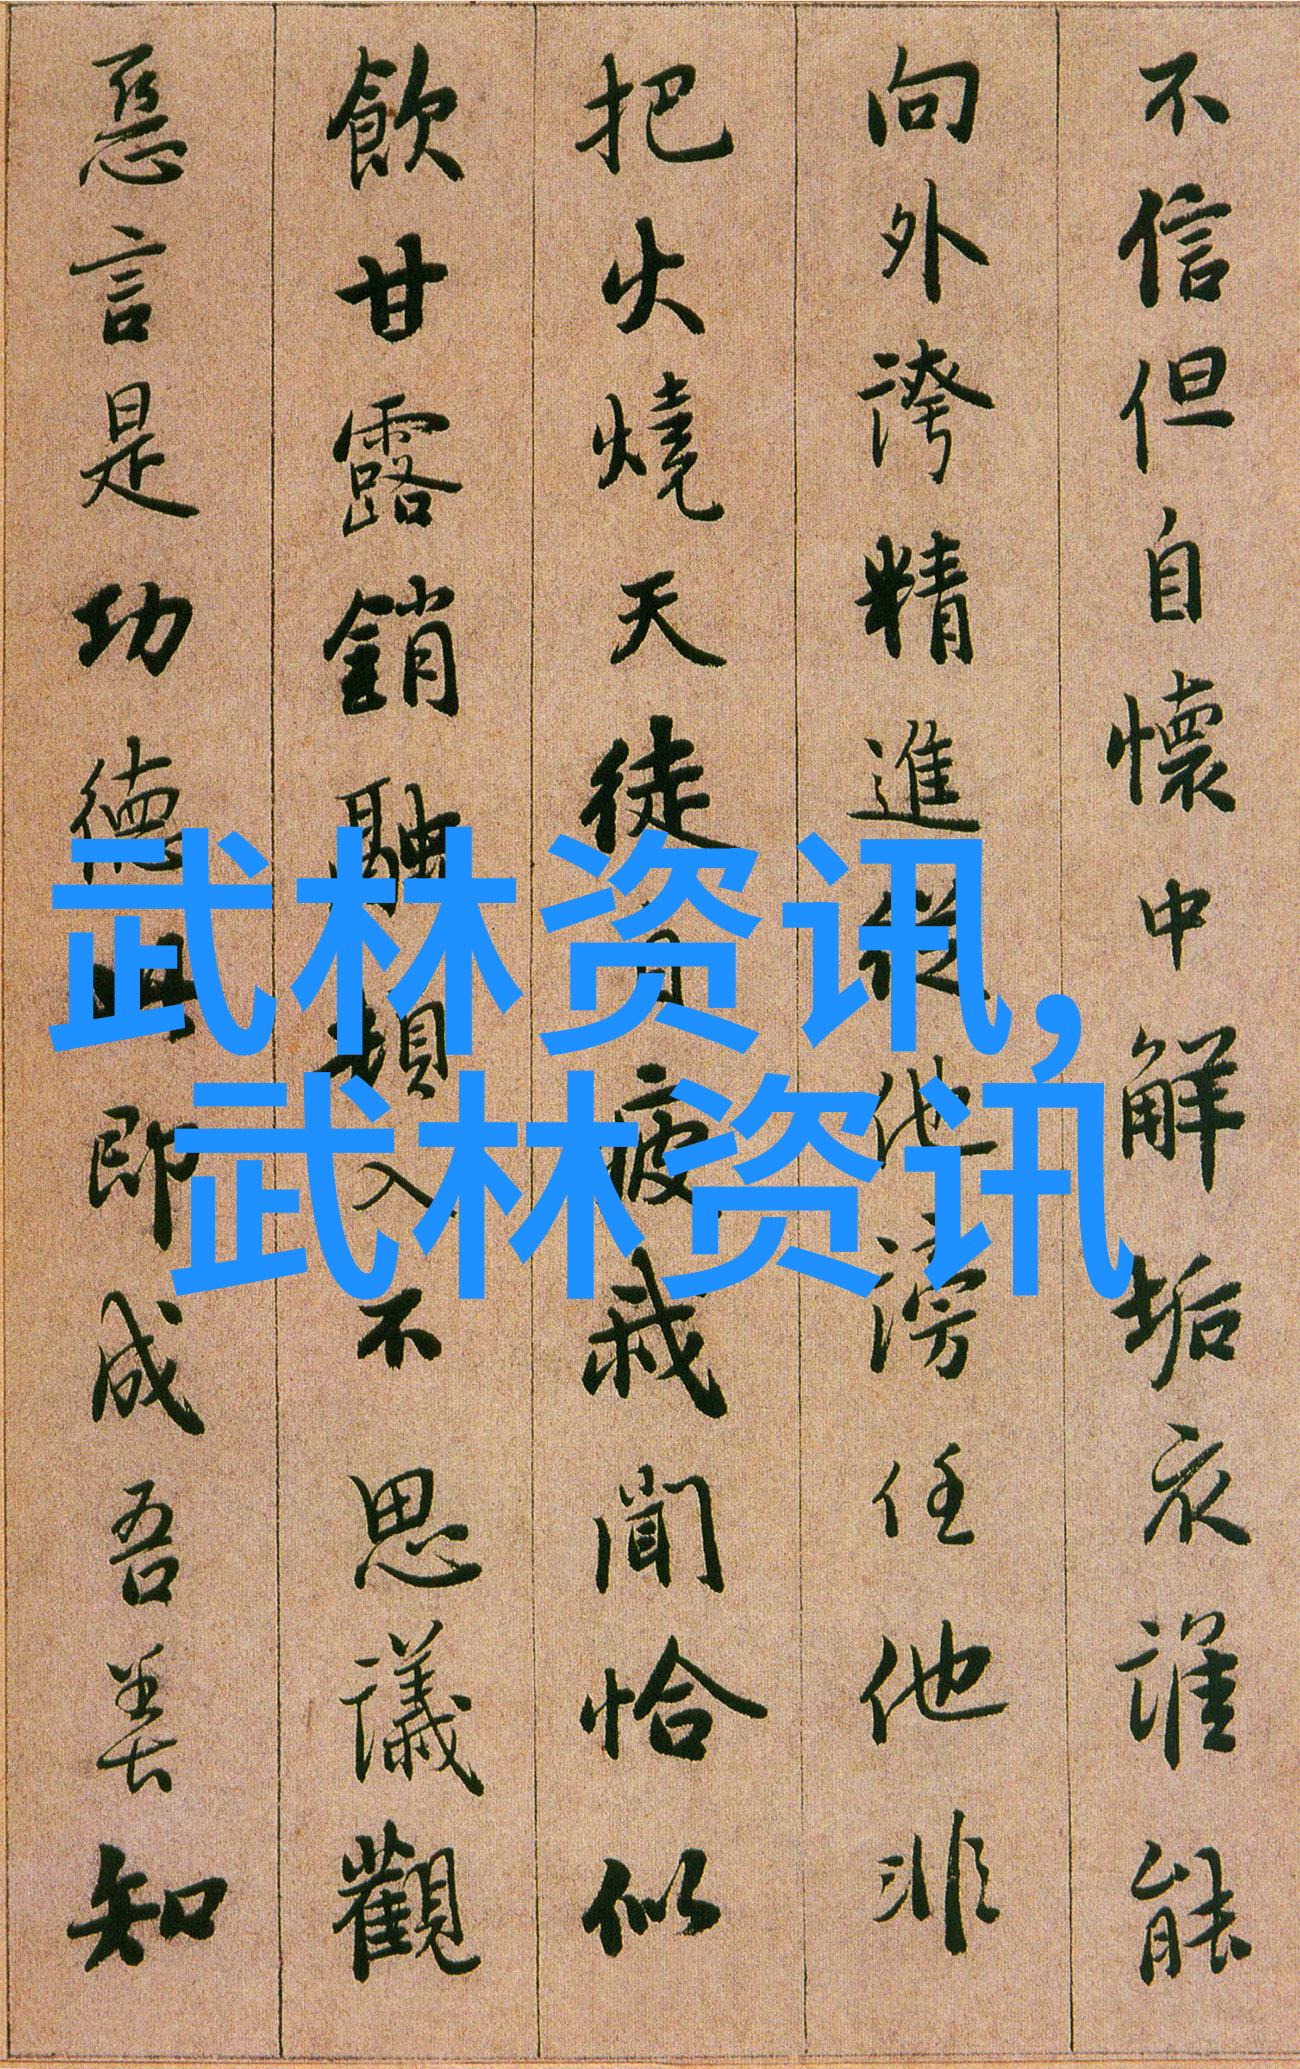 不信但自懷中解垢衣誰能
向外誇精進從他謗任他非
把火燒天徒自疲我聞恰似
飲甘露銷融頓入不思議觀
惡言是功德此即成吾善知
武林资讯,
武林资讯